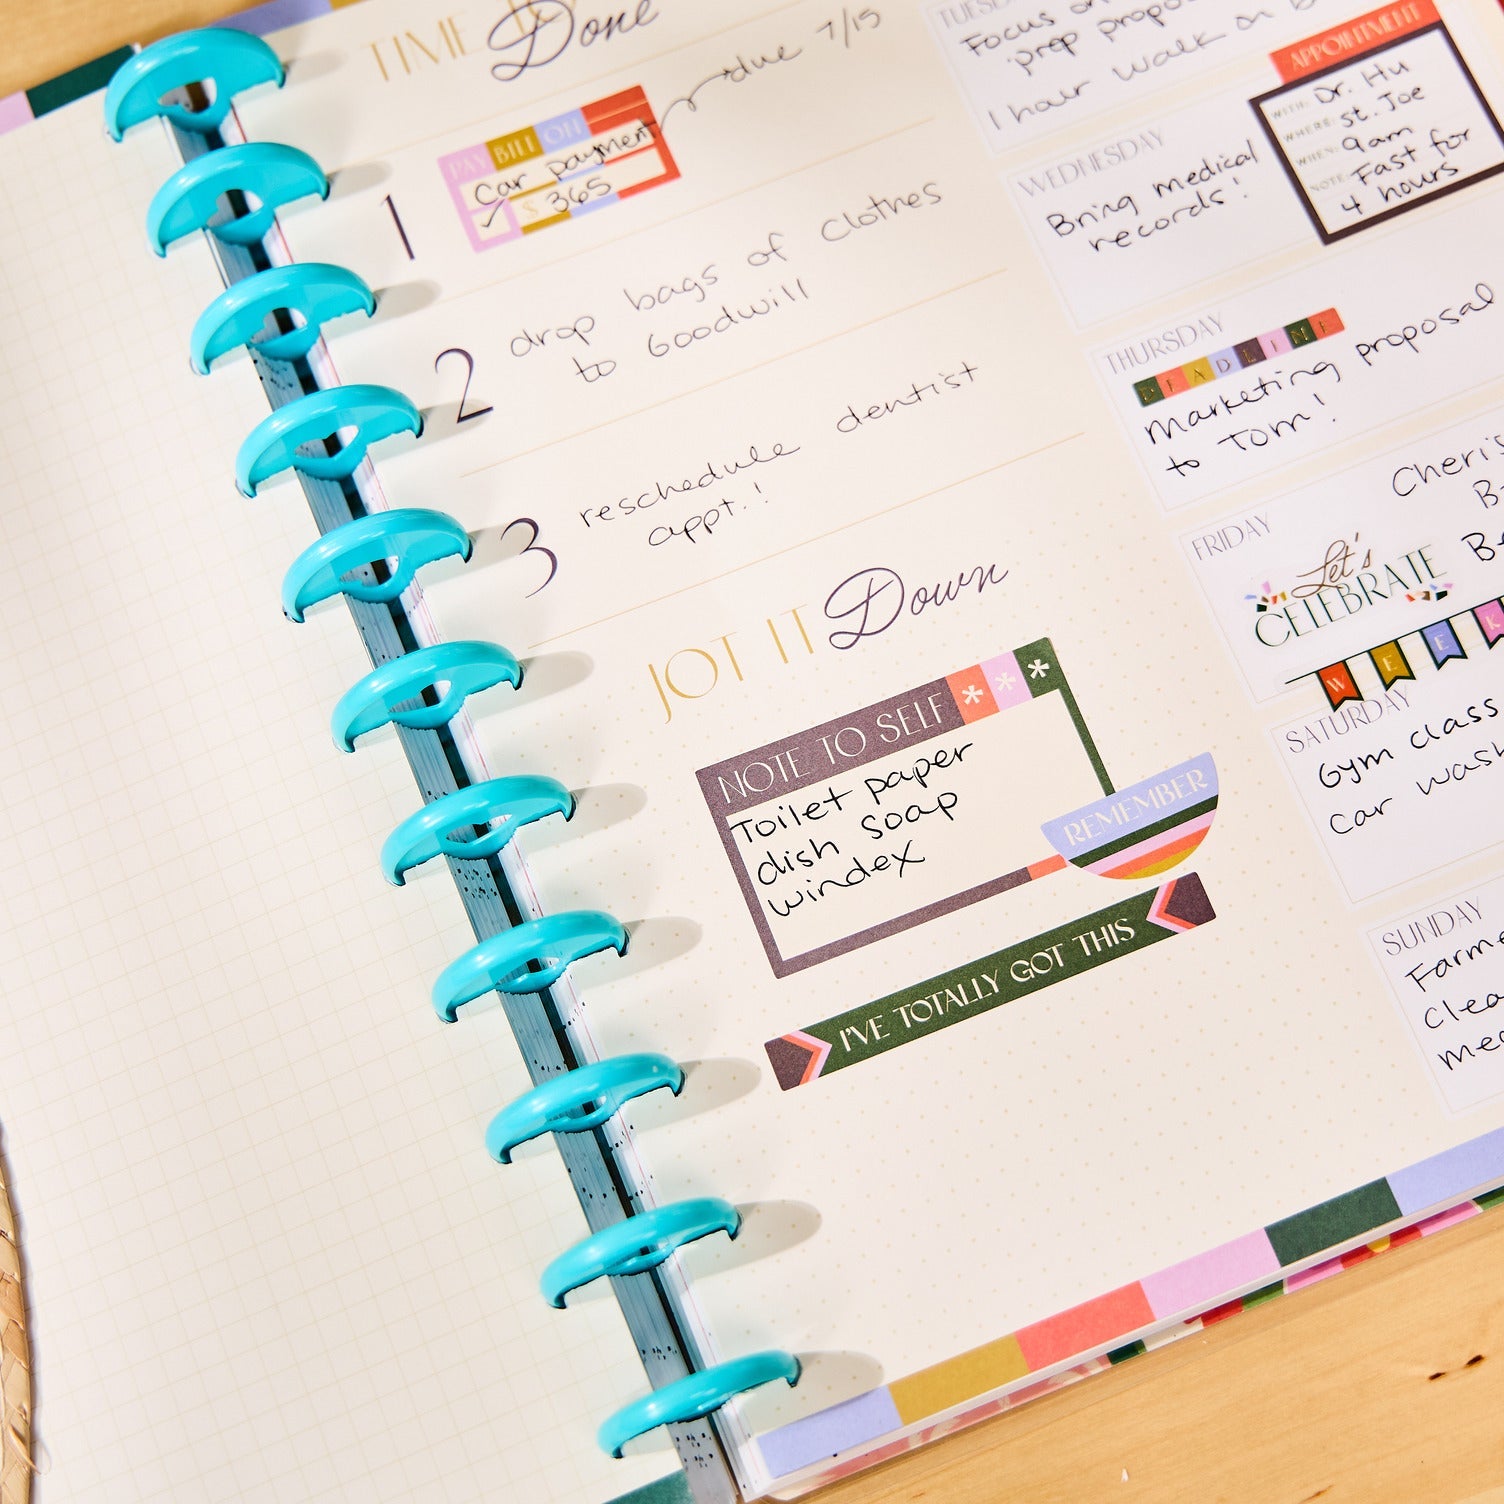 TIME TO Done
due 7/15
PAY BILL OFF
Car payment
$ 365
1
2
drop bags of clothes
to Goodwill
3
reschedule dentist
appt.!
JOT IT Down
NOTE TO SELF
Toilet paper
dish soap
windex
REMEMBER
I'VE TOTALLY GOT THIS
Focus on
prep
1 hour walk on
WEDNESDAY
Bring medical
records!
APPOINTMENT
WITH: Dr. Hu
WHERE: St. Joe
WHEN: 9am
NOTE: Fast for
4 hours
THURSDAY
DEADLINE
Marketing proposal
to Tom!
FRIDAY
Let's
CELEBRATE
WEEK
SATURDAY
Gym class
Car wash
SUNDAY